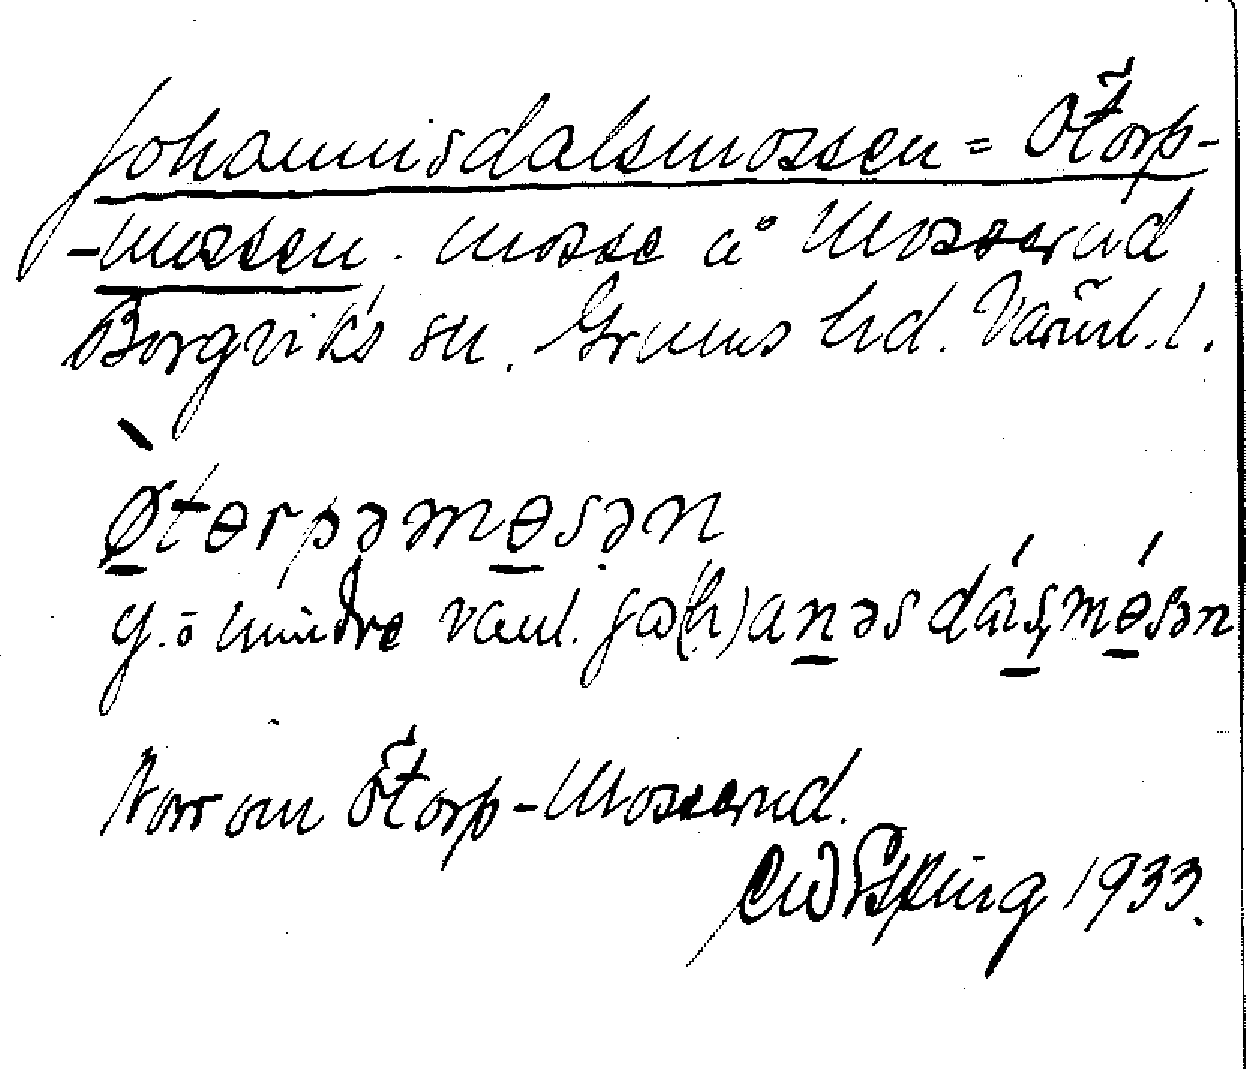 Johannisdalsmossen = Ötorp-
-mossen. mosse å Mosserud
Borgviks sn. Grums hd. Värml. l.
Øtɵrpəmɵsən
y. o mindre vanl. jω(h)anəsdáʂmɵ́sən
Norr om Ötorp-Mosserud.
1933.